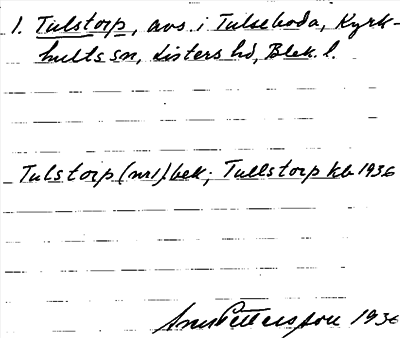 1. Tulstorp, avs. i Tulseboda, Kyrk-
hults sn, Listers hd, Blek. l.
Tulstorp (nr1) bek; Tullstorp kb 1936
Pettersson 1936